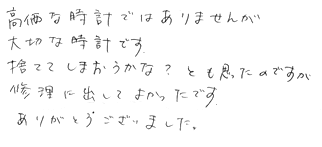 高価な時計ではありませんが
大切な時計です。
捨ててしまおうかな？とも思ったのですが
修理に出してよかったです。
ありがとうございました。